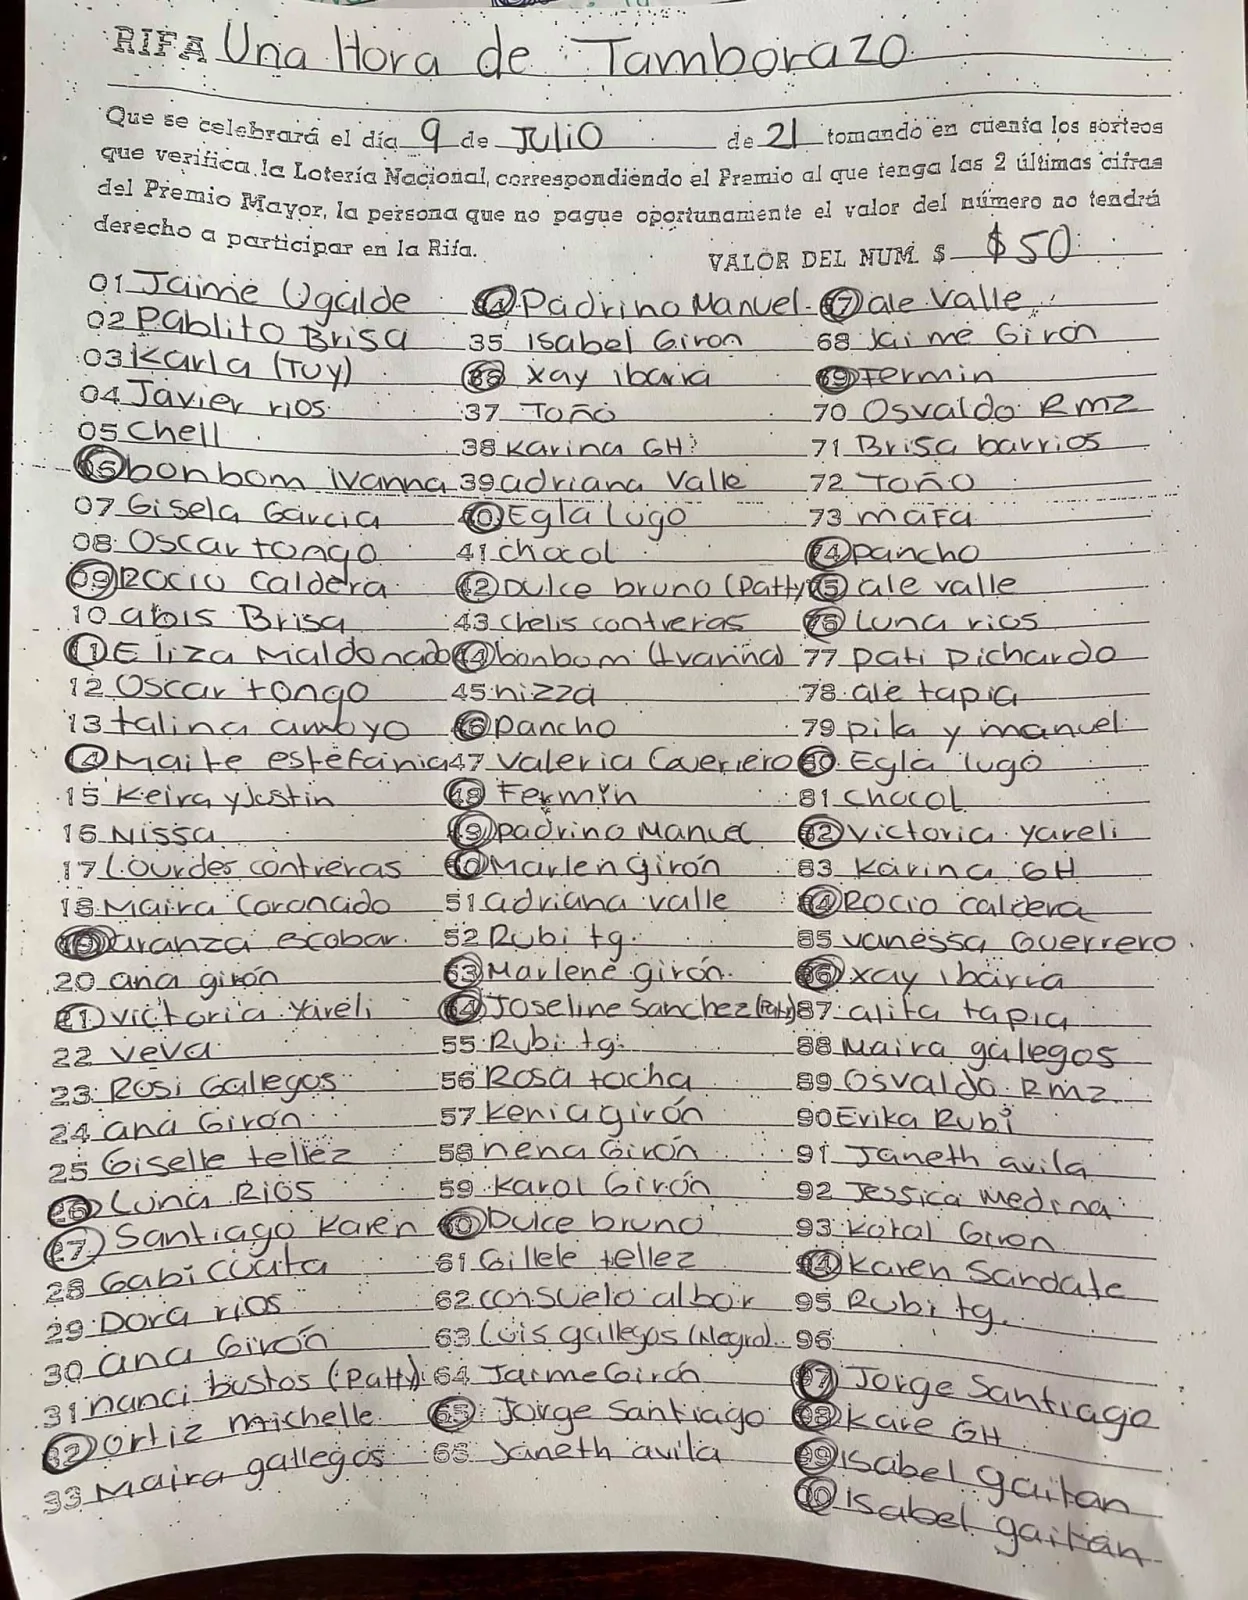 RIFA Una Hora de Tamborazo
Que se celebrará el día 9 de JULIO de 21 tomando en cuenta los sorteos
que verifica la Lotería Nacional, correspondiendo el Premio al que tenga las 2 últimas cifras
del Premio Mayor, la persona que no pague oportunamente el valor del número no tendrá
derecho a participar en la Rifa.
VALOR DEL NUM. $ $50
01 Jaime Ugalde
02 Pablito Brisa
03 Karla (Tuy)
04 Javier rios
05 Chell
06 bonbom ivanna
07 Gisela Garcia
08 Oscar tongo
09 ROCIO Caldera
10 abis Brisa
11 Eliza Maldonado
12 Oscar tongo
13 talina
14 Maite estefania
15 Keira y Justin
16 Nissa
17 Lourdes contreras
18 Maira Coronado
19 aranza escobar.
20 ana girón
21 victoria Yareli
22 veva
23 Rosi Gallegos
24 ana Girón
25 Giselle tellez
26 Luna Rios
27 Santiago Karen
28 Gabi cuata
29 Dora rios
30 ana Girón
31 nanci bustos (Patty)
32 ortiz michelle
33 Maira gallegos
34 Padrino Manuel
35 Isabel Giron
36 xay ibarra
37 Toño
38 Karina GH
39 adriana Valle
40 Egla Lugo
41 chocol
42 Dulce bruno (Patty)
43 chelis contreras
44 bonbom (Ivanna)
45 nizza
46 pancho
47 Valeria Guerrero
48 Fermin
49 padrino Manuel
50 Marlen girón
51 adriana valle
52 Rubi tg.
53 Marlene girón.
54 Joseline Sanchez (Paty)
55 Rubi tg.
56 Rosa tocha
57 Kenia girón
58 nena Girón
59 Karol Girón
60 Dulce bruno
61 Gillele tellez
62 consuelo albor
63 Luis gallegos (Negro).
64 Jaime Girón
65 Jorge Santiago
66 Janeth avila
67 ale Valle
68 Jaime Girón
69 Fermin
70 Osvaldo Rmz
71 Brisa barrios
72 Toño
73 mafa
74 pancho
75 ale valle
76 Luna rios
77 pati pichardo
78 ale tapia
79 pila y manuel
80 Egla lugo
81 Chocol
82 victoria yareli
83 Karina GH
84 ROCIO caldera
85 vanessa Guerrero
86 xay ibarra
87 alita tapia
88 Maira gallegos
89 Osvaldo Rmz
90 Erika Rubi
91 Janeth avila
92 Jessica Medina
93 Karol Giron
94 Karen Sardate
95 Rubi tg.
96
97 Jorge Santiago
98 Kare GH
99 Isabel gaitan
00 Isabel gaitan